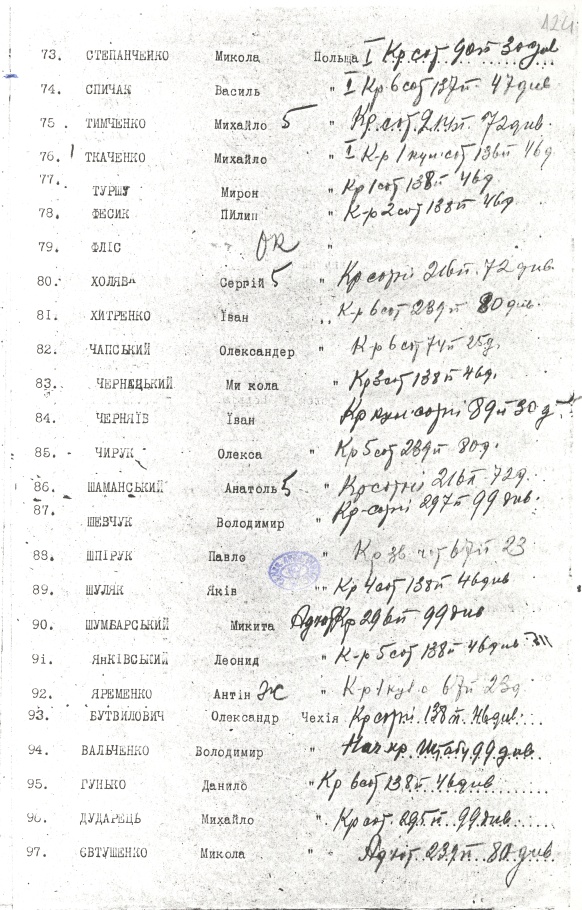 124
73. СТЕПАНЧЕНКО Микола Польща I Кр сот 90п 30див
74. СПИЧАК Василь " I Кр 6 сот 137п. 47див
75. ТИМЧЕНКО Михайло 5 " Кр. сот 214п. 72див.
76. ТКАЧЕННО Михайло " I К-р 1 кул сот 136п 46д.
77. ТУРШУ Мирон " Кр 1 сот 138п 46д.
78. ФЕСИК ПИлип " К-р 2 сот 138п 46д.
79. ФЛІС ОК "
80. ХОЛЯВА Сергій 5 " Кр сотні 216п. 72див.
81. ХИТРЕНКО Їван " К-р 6 сот 239п 80див.
82. ЧАПСЬКИЙ Олександер " К-р 6 сот 74п 25д.
83. ЧЕРНЕЦЬКИЙ Ми кола " Кр 3 сот 138п 46д.
84. ЧЕРНЯЇВ Їван Кр сотні 89п 30д.
85. ЧИРУК Олекса " Кр 5 сот 239п 80д.
86. ШАМАНСЬКИЙ Анатоль 5 " Кр сотні 216п 72д.
87. ШЕВЧУК Володимир " Кр-сотні 297п 99див.
88. ШПІРУК Павло " Кр зв чот 67п 23
89. ШУЛЯК Яків " Кр 4 сот 138п 46див
90. ШУМБАРСЬКИЙ Микита Адют Кр 296п 99див
91. ЯНКІВСЬКИЙ Леонид " К-р 5 сот 138п 46див
92. ЯРЕМЕНКО Антін Ж " К-р 1 67п 23д
93. БУТВИЛОВИЧ Олександр Чехія Кр сотні 138п. 46див.
94. ВАЛЬЧЕНКО Володимир " Нач кр Штабу 99див.
95. ГУНЬКО Данило " Кр 6 сот 138п 46див
96. ДУДАРЕЦЬ Михайло " Кр сот 295п 99див.
97. ЄВТУШЕНКО Микола " Адют 239п 80див.